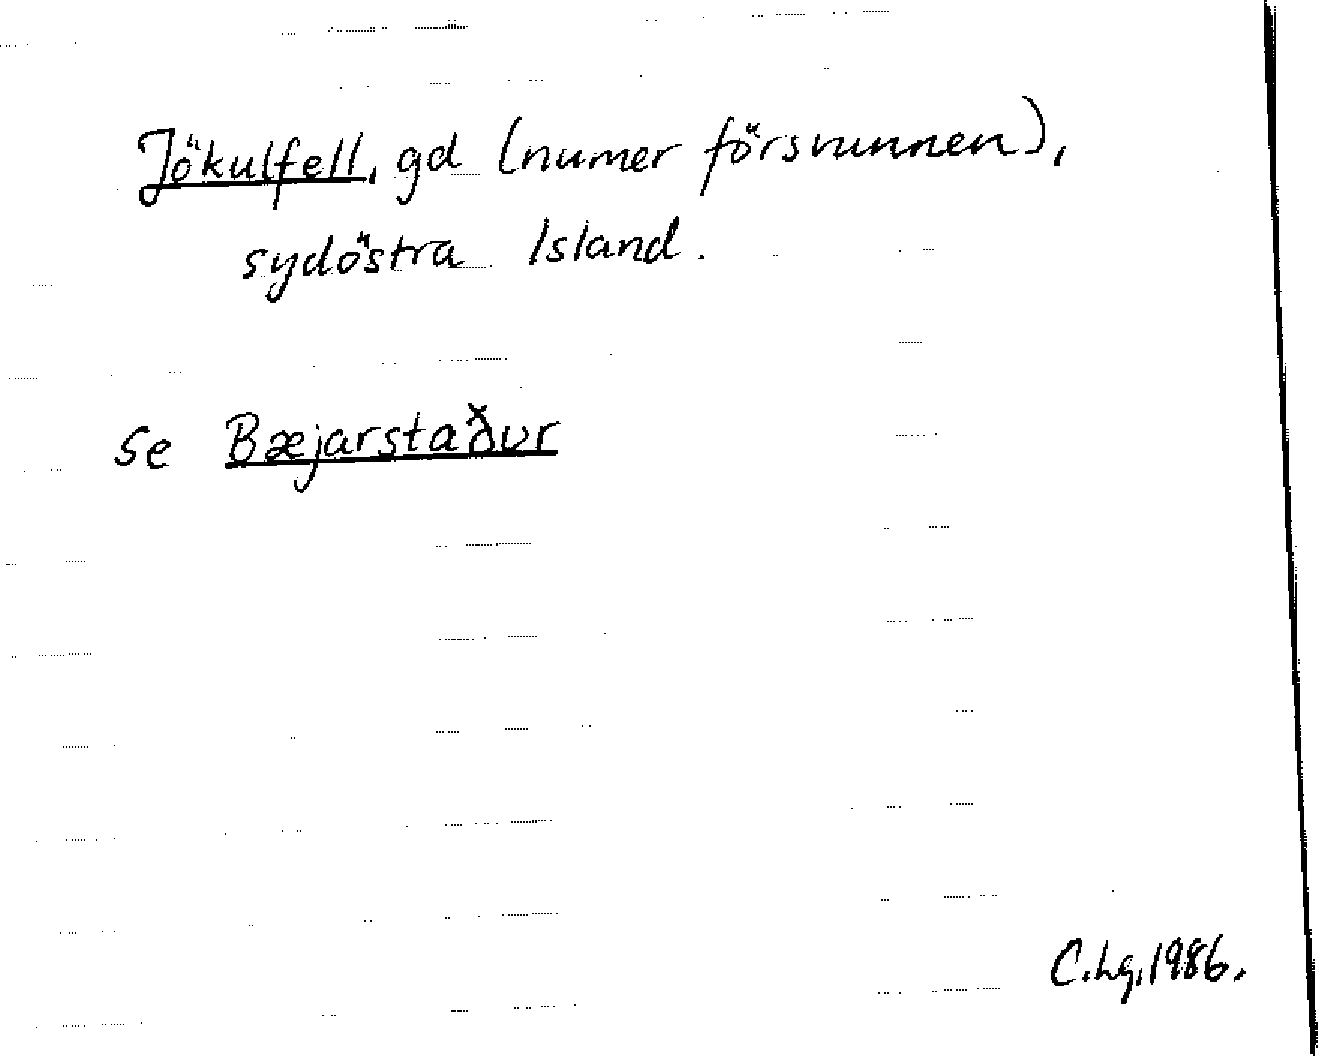 Jökulfell, gd (numer försvunnen),
sydöstra Island.
se Bæjarstaður
C.Lg.1986.